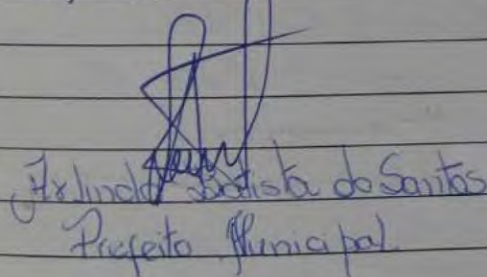 Arlindo Batista do Santos
Prefeito Municipal